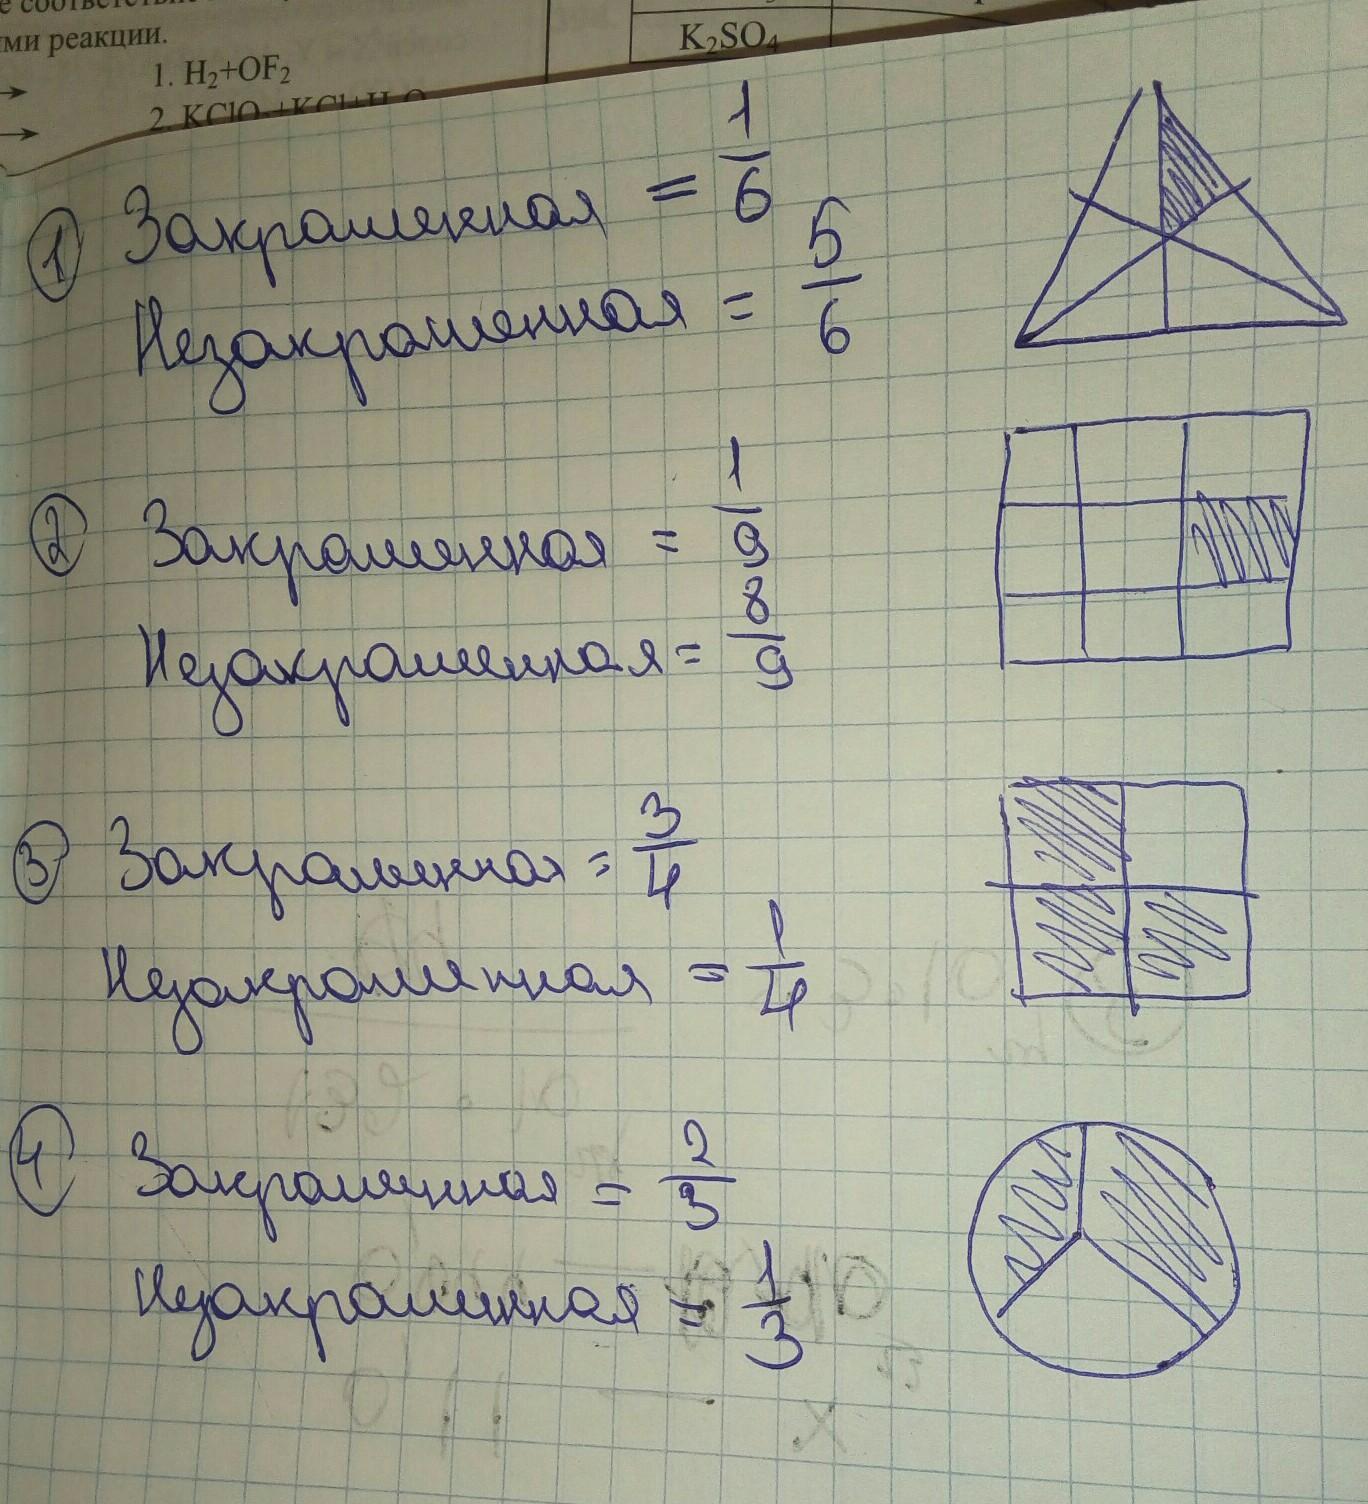 ми реакции.
1. H₂+OF₂
K₂SO₄
① Закрашенная = 1/6
Незакрашенная = 5/6
② Закрашенная = 1/9
Незакрашенная = 8/9
③ Закрашенная = 3/4
Незакрашенная = 1/4
④ Закрашенная = 2/3
Незакрашенная = 1/3